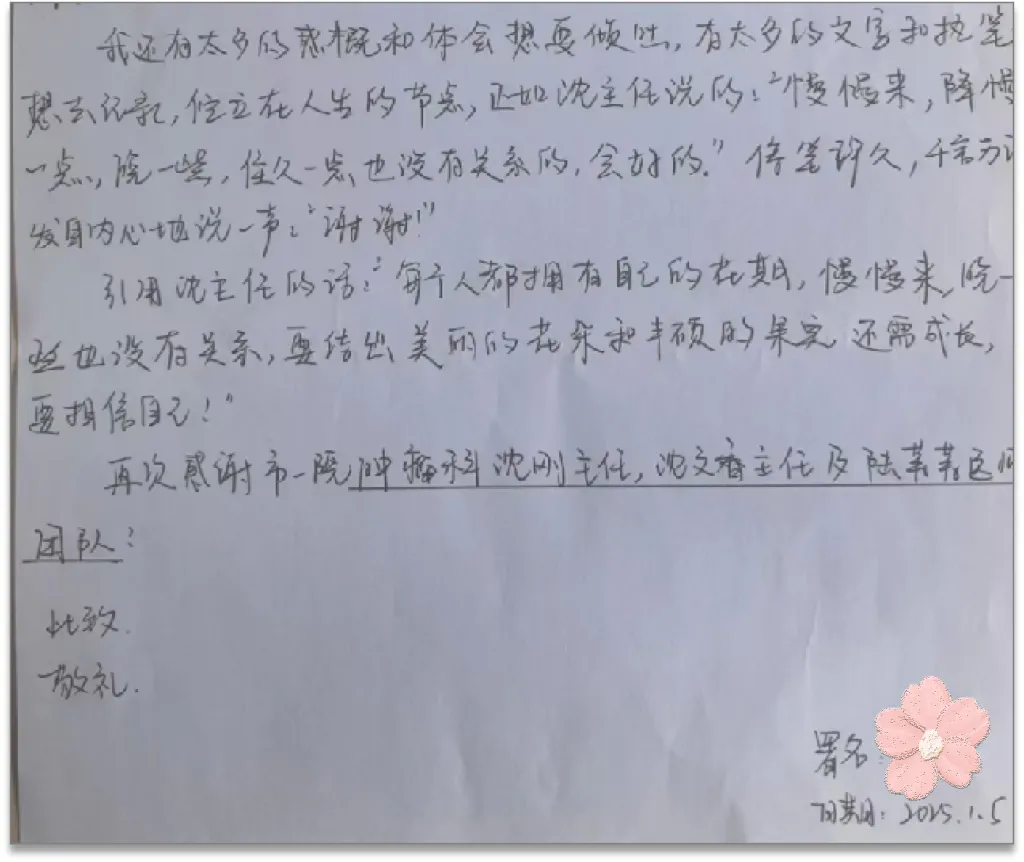 我还有太多的感慨和体会想要倾吐,有太多的文字和执笔
想去记录,伫立在人生的节点,正如沈主任说的:“慢慢来,降慢
一点,晚一些,住久一点也没有关系的,会好的。”停笔许久,千言万语
发自内心地说一声:“谢谢!”
引用沈主任的话:“每个人都拥有自己的花期,慢慢来,晚一
些也没有关系,要结出美丽的花朵和丰硕的果实还需成长,
要相信自己!”
再次感谢市一院肿瘤科沈刚主任,沈文香主任及陆苇苇医师
团队!
此致.
敬礼.
署名
日期:2025.1.5